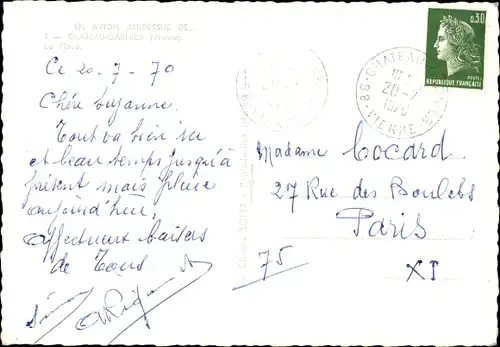 EN AVION AU-DESSUS DE...
3 - CHATEAU-GARNIER (Vienne).
La Place.
Ce 20-7-70
Chère Suzanne.
Tout va bien ici
et beau temps jusqu'à
présent mais pluie
aujourd'hui,
affectueux baisers
de Tous
Madame Cocard
27 Rue des Boulets
Paris
75
XI
0,30
POSTES
REPUBLIQUE FRANÇAISE
86 - CHATEAU
20-7
1970
VIENNE